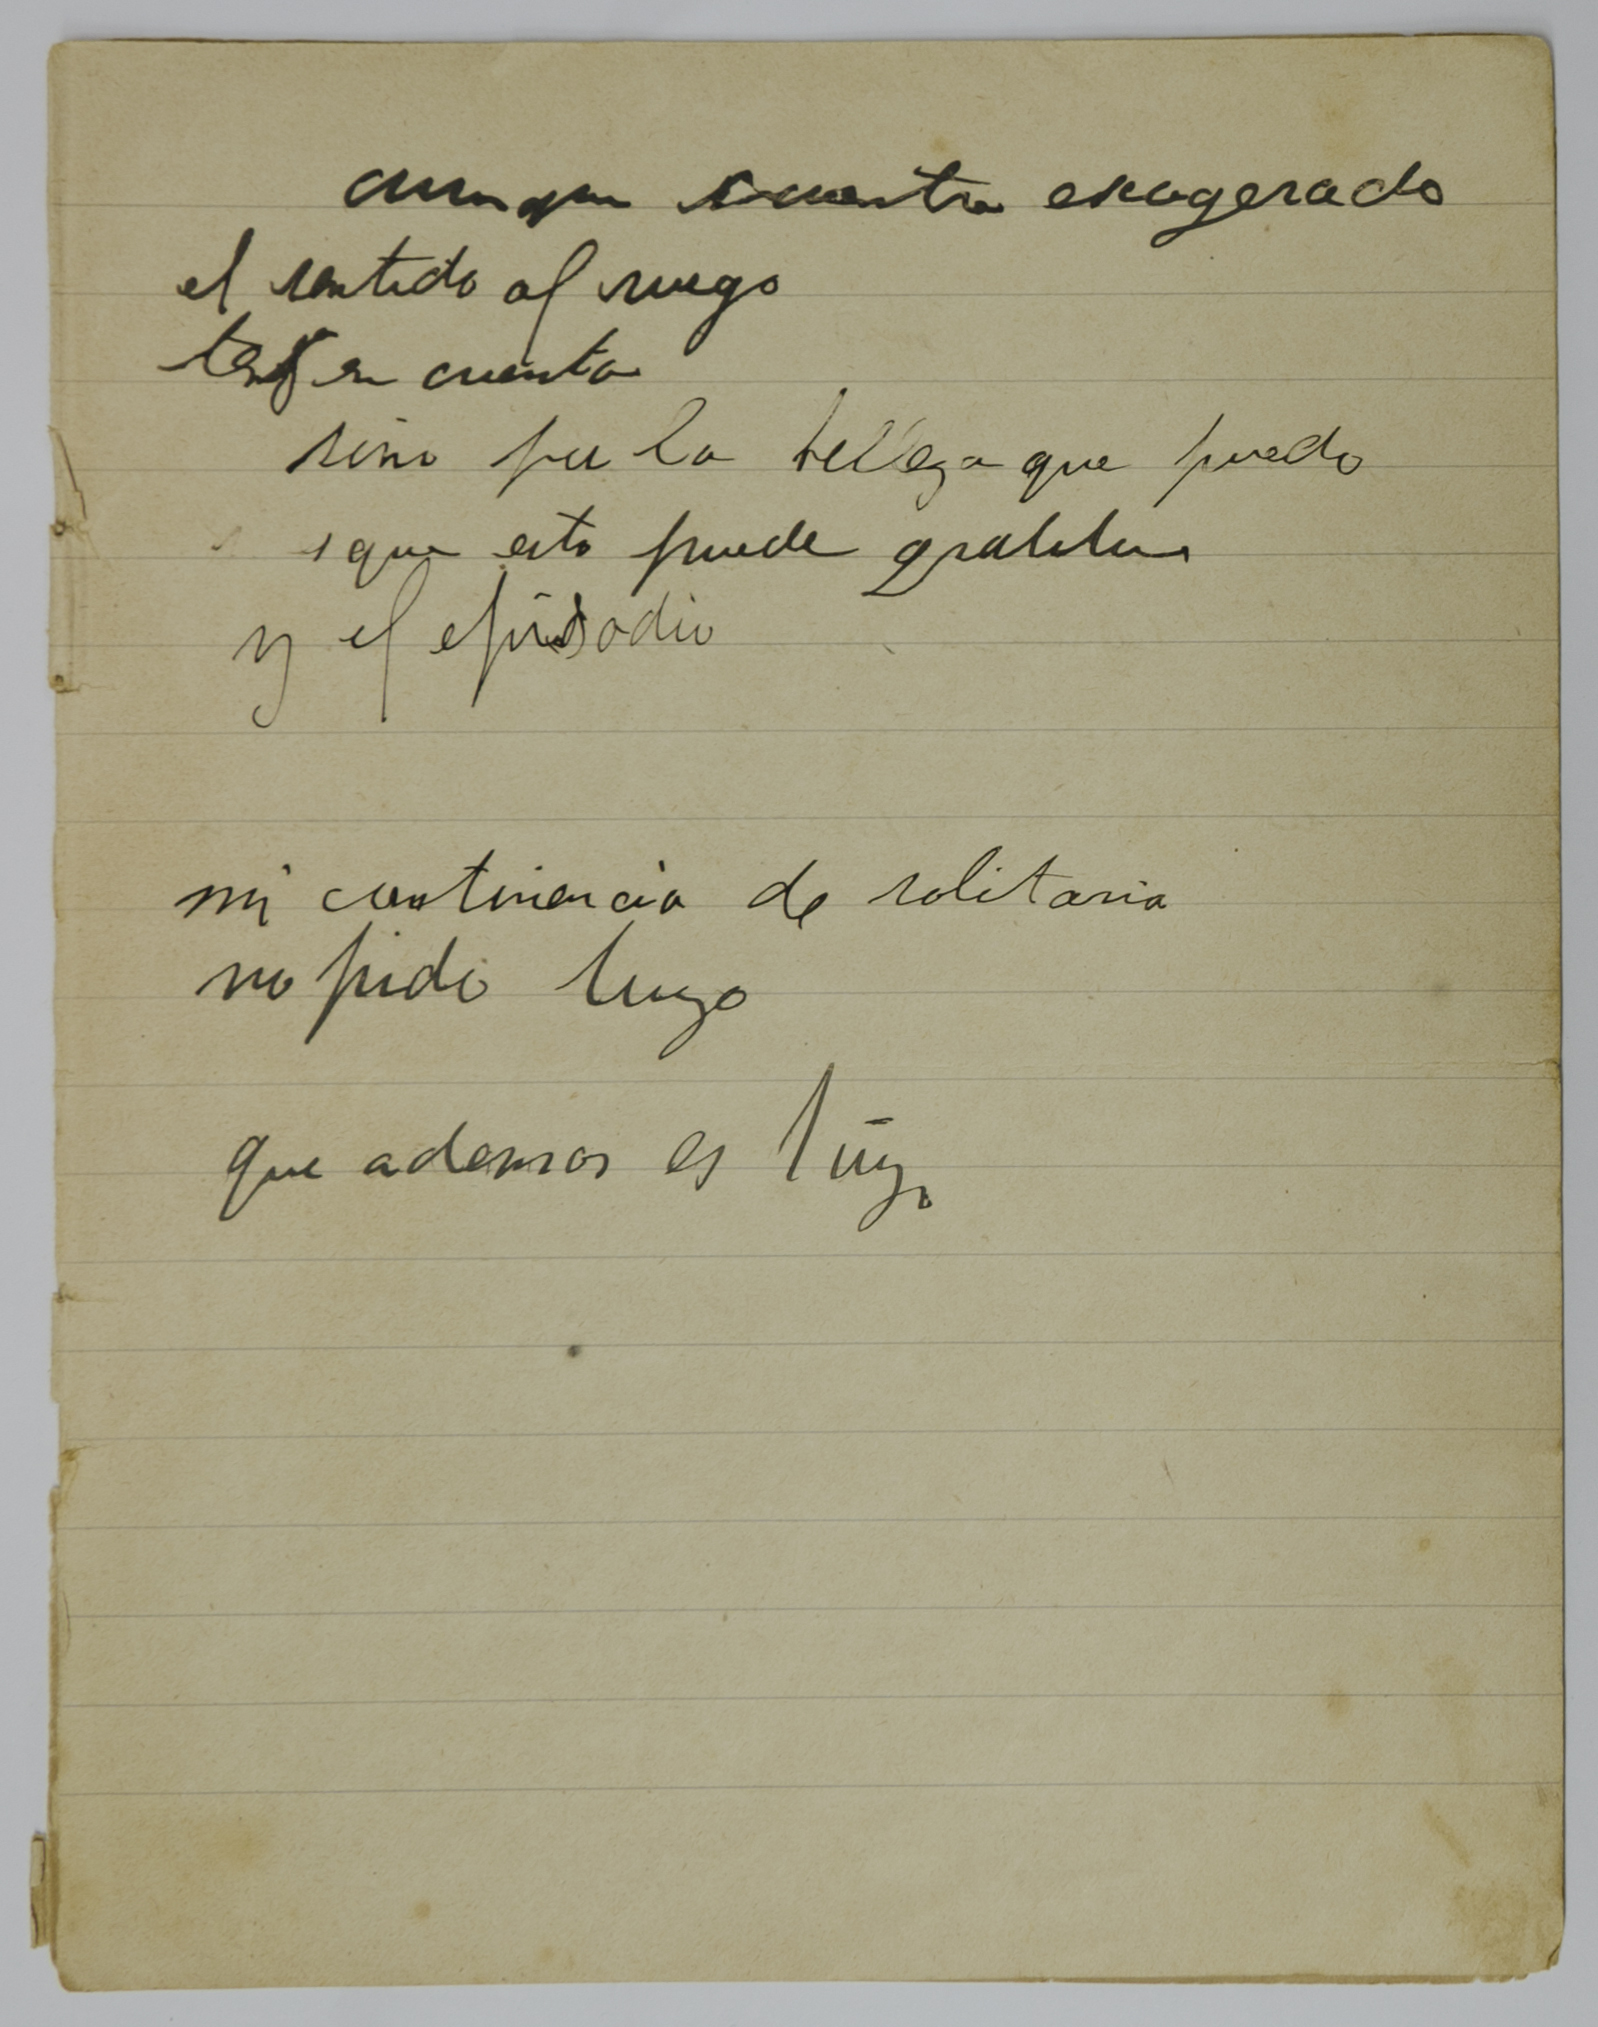 aunque encuentra exagerado
el sentido al ruego
tenga en cuenta
sino por la belleza que puedo
que esto puede
y el episodio
mi continencia de solitaria
no pido luego
que ademas es